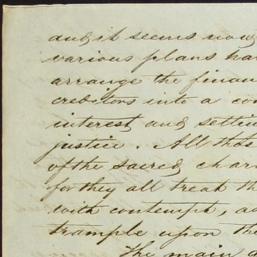 and it seems now
various plans ha
arrange the finan
creditors into a co
interest and settl
justice. All thos
of the sacred char
for they all treat th
with contempt, a
trample upon the
The main